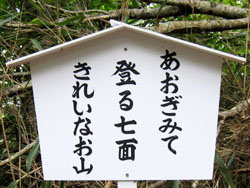 あおぎみて
登る七面
きれいなお山